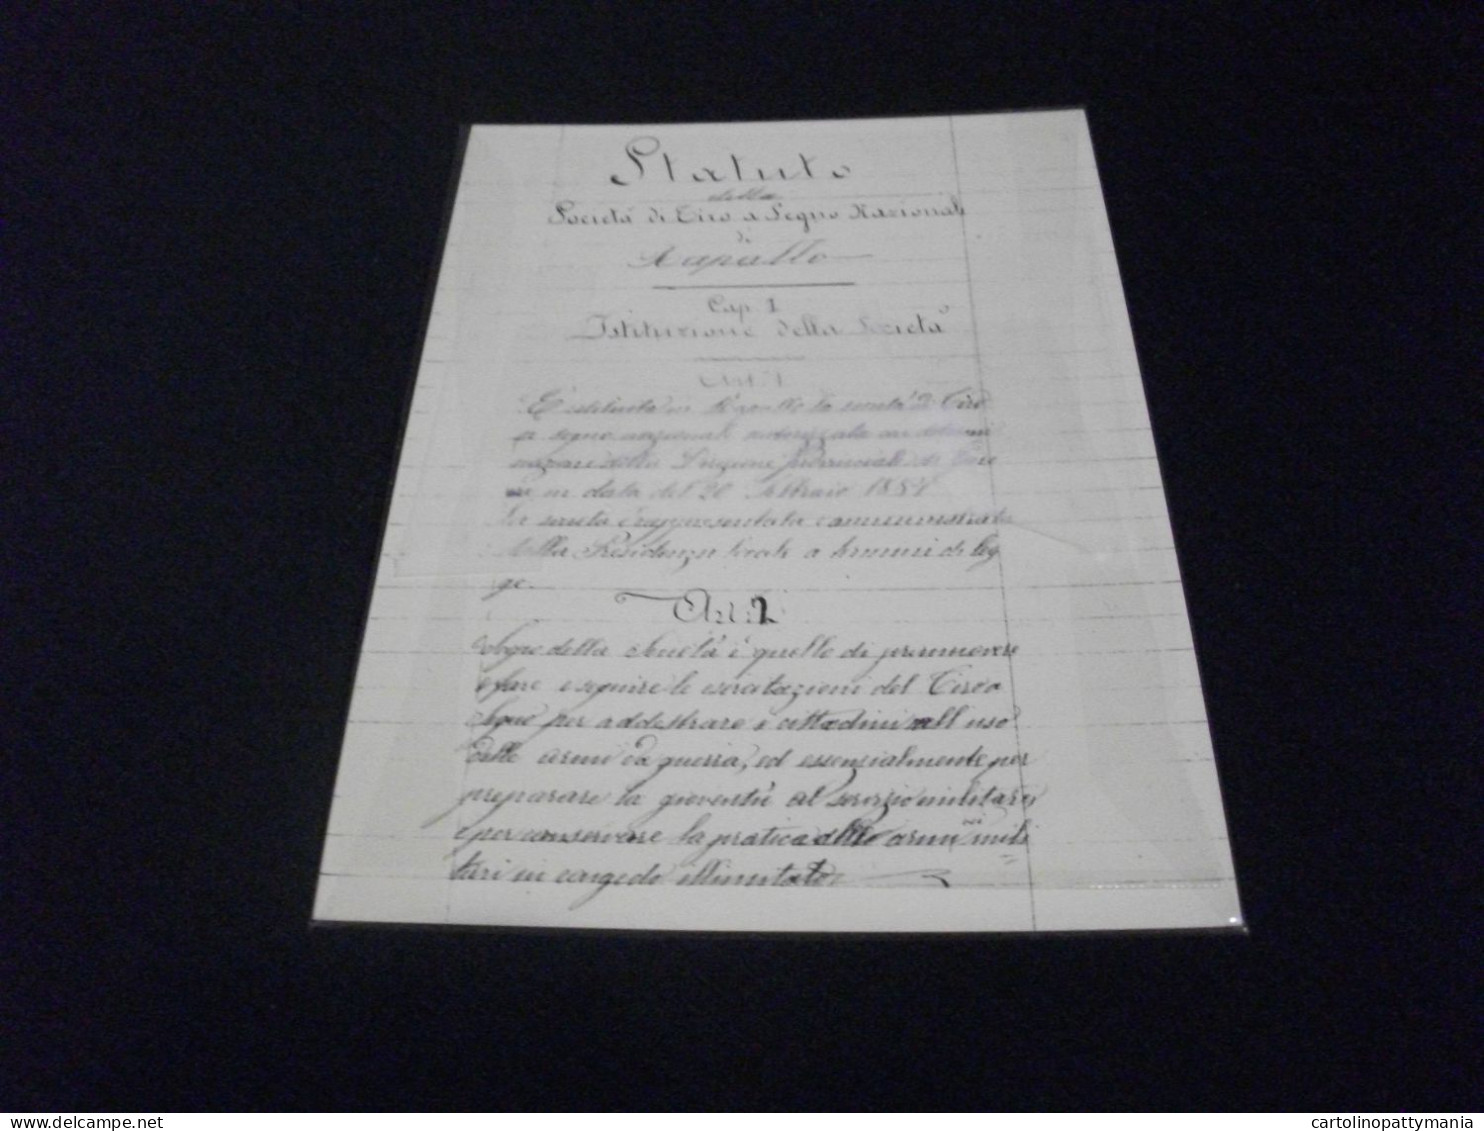 Statuto
della
Società di Tiro a Segno Nazionale
di
Rapallo
Cap. I
Istituzione della Società
Art. 1
È istituita in Rapallo la società di Tiro
a segno nazionale autorizzata con
della Direzione provinciale di Tiro
in data del 20 Febbraio 1884
La società è rappresentata e amministrata
dalla Presidenza locale a termini di leg
ge.
Art. 2
Scopo della Società è quello di promuovere
e fare eseguire le esercitazioni del Tiro a
Segno per addestrare i cittadini all'uso
delle armi da guerra, ed essenzialmente per
preparare la gioventù al servizio militare,
e per conservare la pratica delle armi nei mili
tari in congedo illimitato
delcampe.net
cartolinopattymania